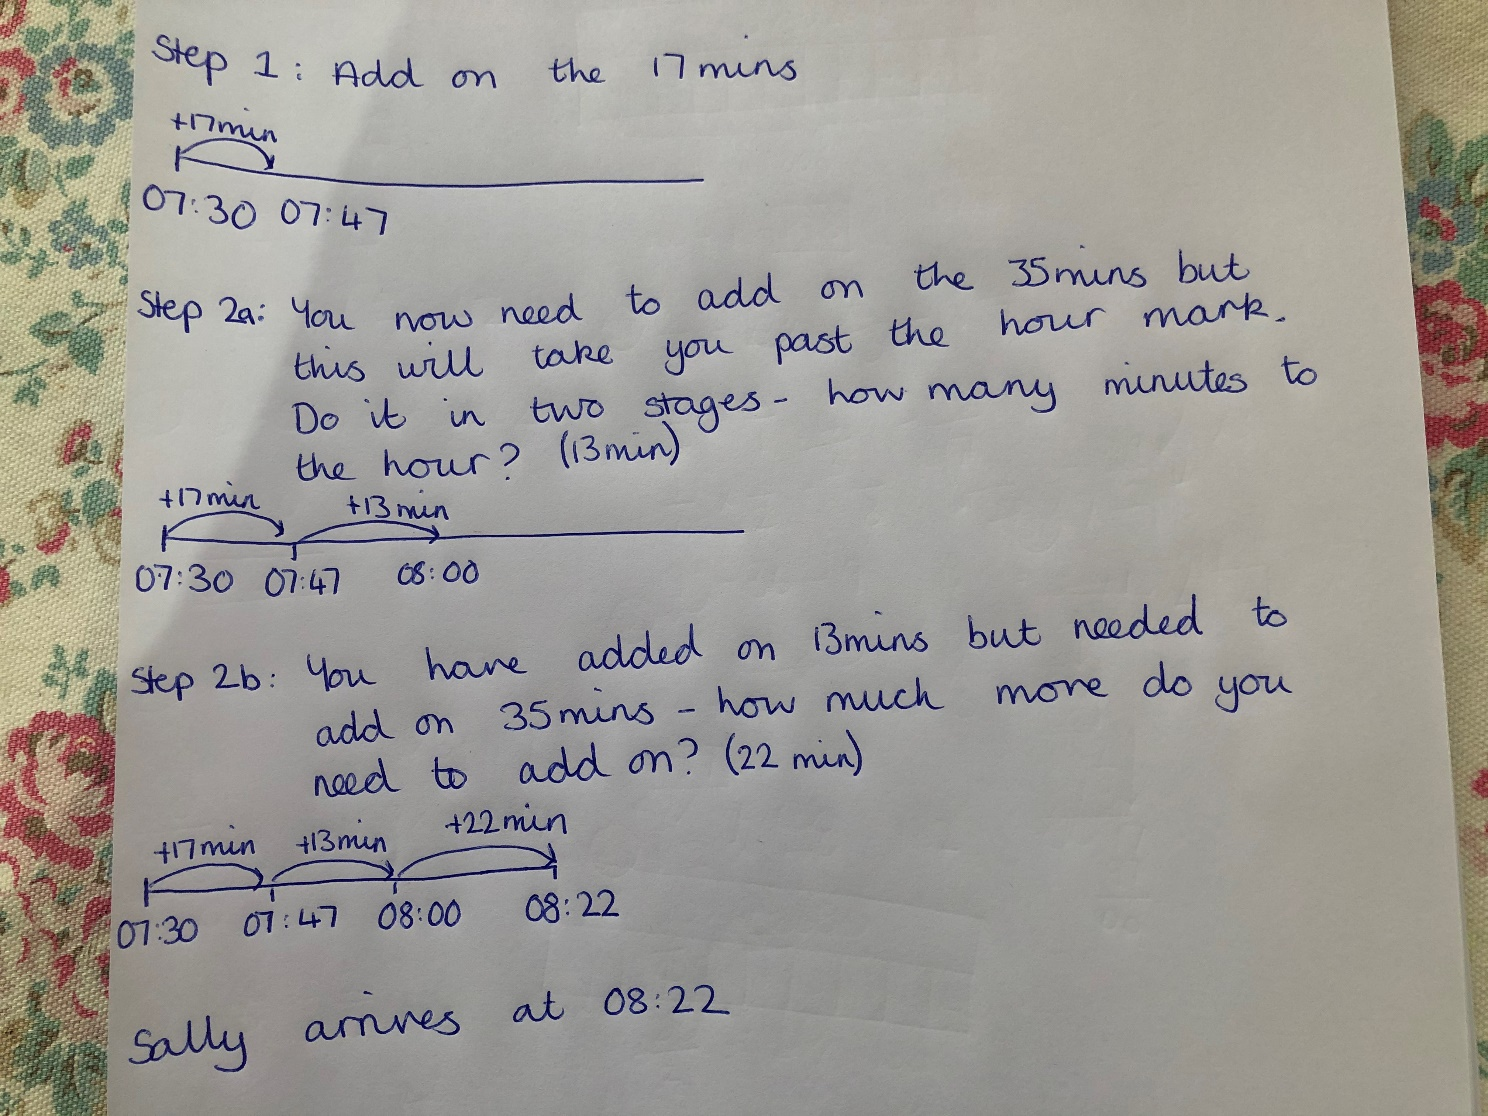 Step 1: Add on the 17 mins
+17min
07:30 07:47
Step 2a: You now need to add on the 35mins but
this will take you past the hour mark.
Do it in two stages - how many minutes to
the hour? (13min)
+17min +13min
07:30 07:47 08:00
Step 2b: You have added on 13mins but needed to
add on 35mins - how much more do you
need to add on? (22 min)
+17min +13min +22min
07:30 07:47 08:00 08:22
Sally arrives at 08:22